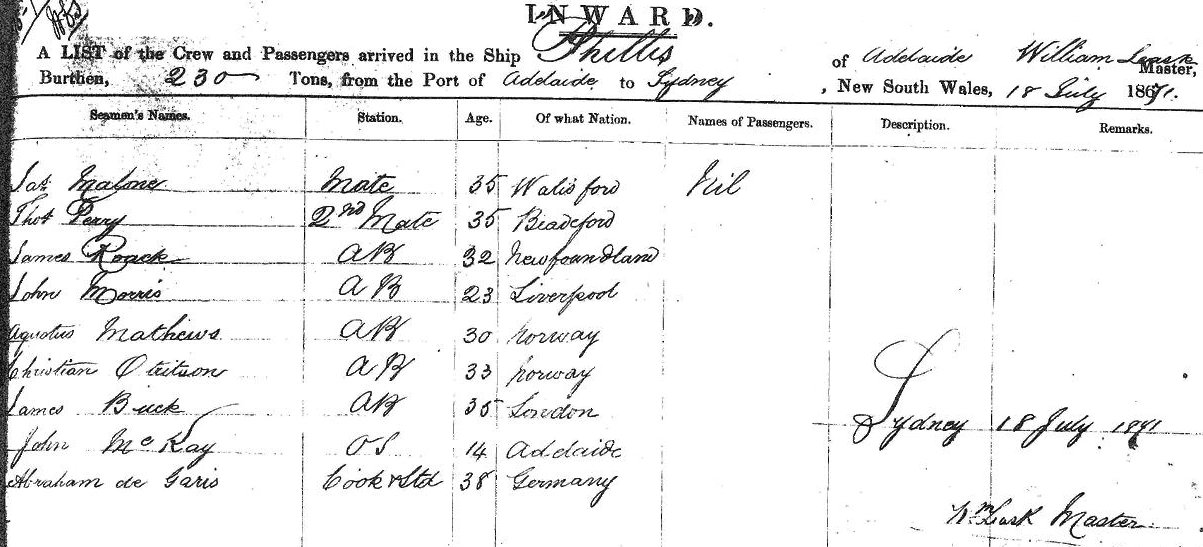 INWARD.
A LIST of the Crew and Passengers arrived in the Ship Phillis of Adelaide William Lask Master,
Burthen, 230 Tons, from the Port of Adelaide to Sydney, New South Wales, 18 July 1871.
Seamen's Names. Station. Age. Of what Nation. Names of Passengers. Description. Remarks.
Jas Malone Mate 35 Nil
Thos Perry 2nd Mate 35 Bradeford
James Roack AB 32 Newfoundland
John Morris AB 23 Liverpool
Agustus Mathews AB 30 Norway
Christian AB 33 Norway
James Buck AB 35 London
John McKay OS 14 Adelaide
Abraham de Garis Cook & Std 38 Germany
Sydney 18 July 1871
Wm Lask Master